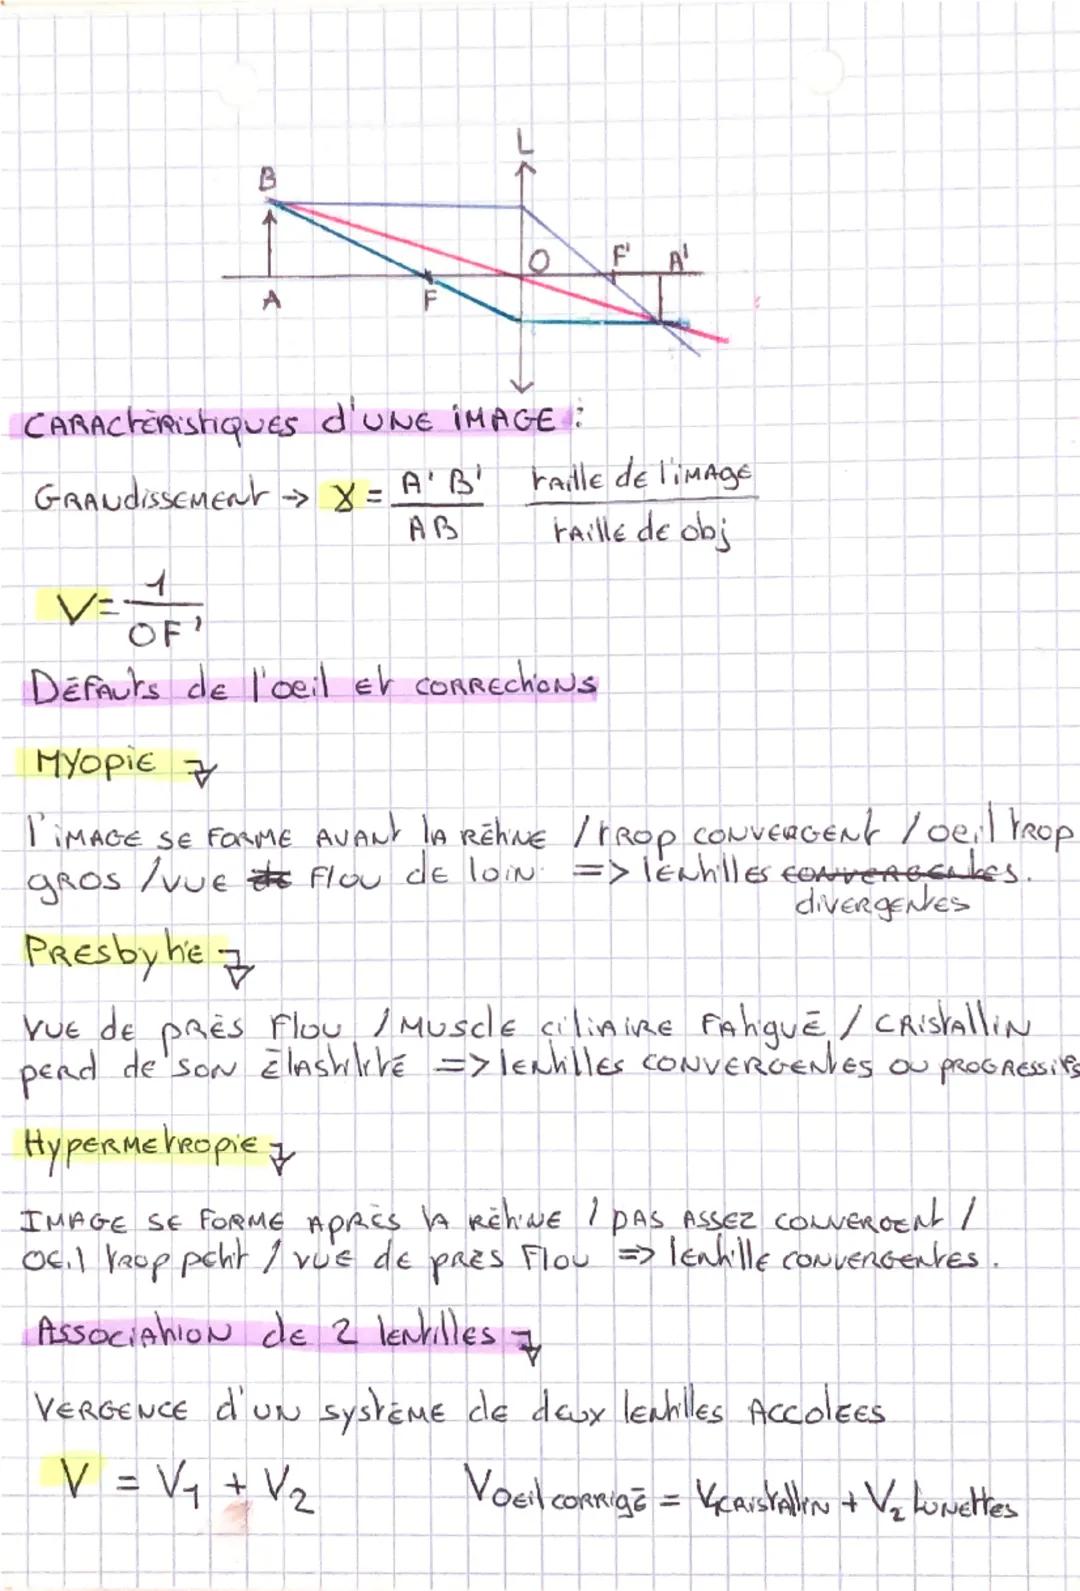 L
B
O
F'
A'
A
F
CARACTÉRISTIQUES d'UNE IMAGE :
GRANDISSEMENT → γ = A'B' / AB taille de l'IMAGE / taille de obj
V = 1 / OF'
DÉFAUTS de l'oeil et CORRECTIONS
MYOPIE
l'IMAGE SE FORME AVANT LA RÉTINE / TROP CONVERGENT / oeil TROP
gros / vue flou de loin. => lentilles convergentes.
divergentes
PRESBYTIE
VUE de PRÈS Flou / Muscle ciliaire FATIGUÉ / CRISTALLIN
perd de SON ÉLASTICITÉ => lentilles CONVERGENTES ou PROGRESSIFS
HYPERMETROPIE
IMAGE SE FORME APRÈS LA RÉTINE / PAS ASSEZ CONVERGENT /
Oeil trop petit / VUE de près Flou => lentille CONVERGENTES.
ASSOCIATION de 2 lentilles
VERGENCE d'UN SYSTÈME de deux lentilles ACCOLEES
V = V1 + V2 Voeil corrigé = Vcristallin + V2 lunettes